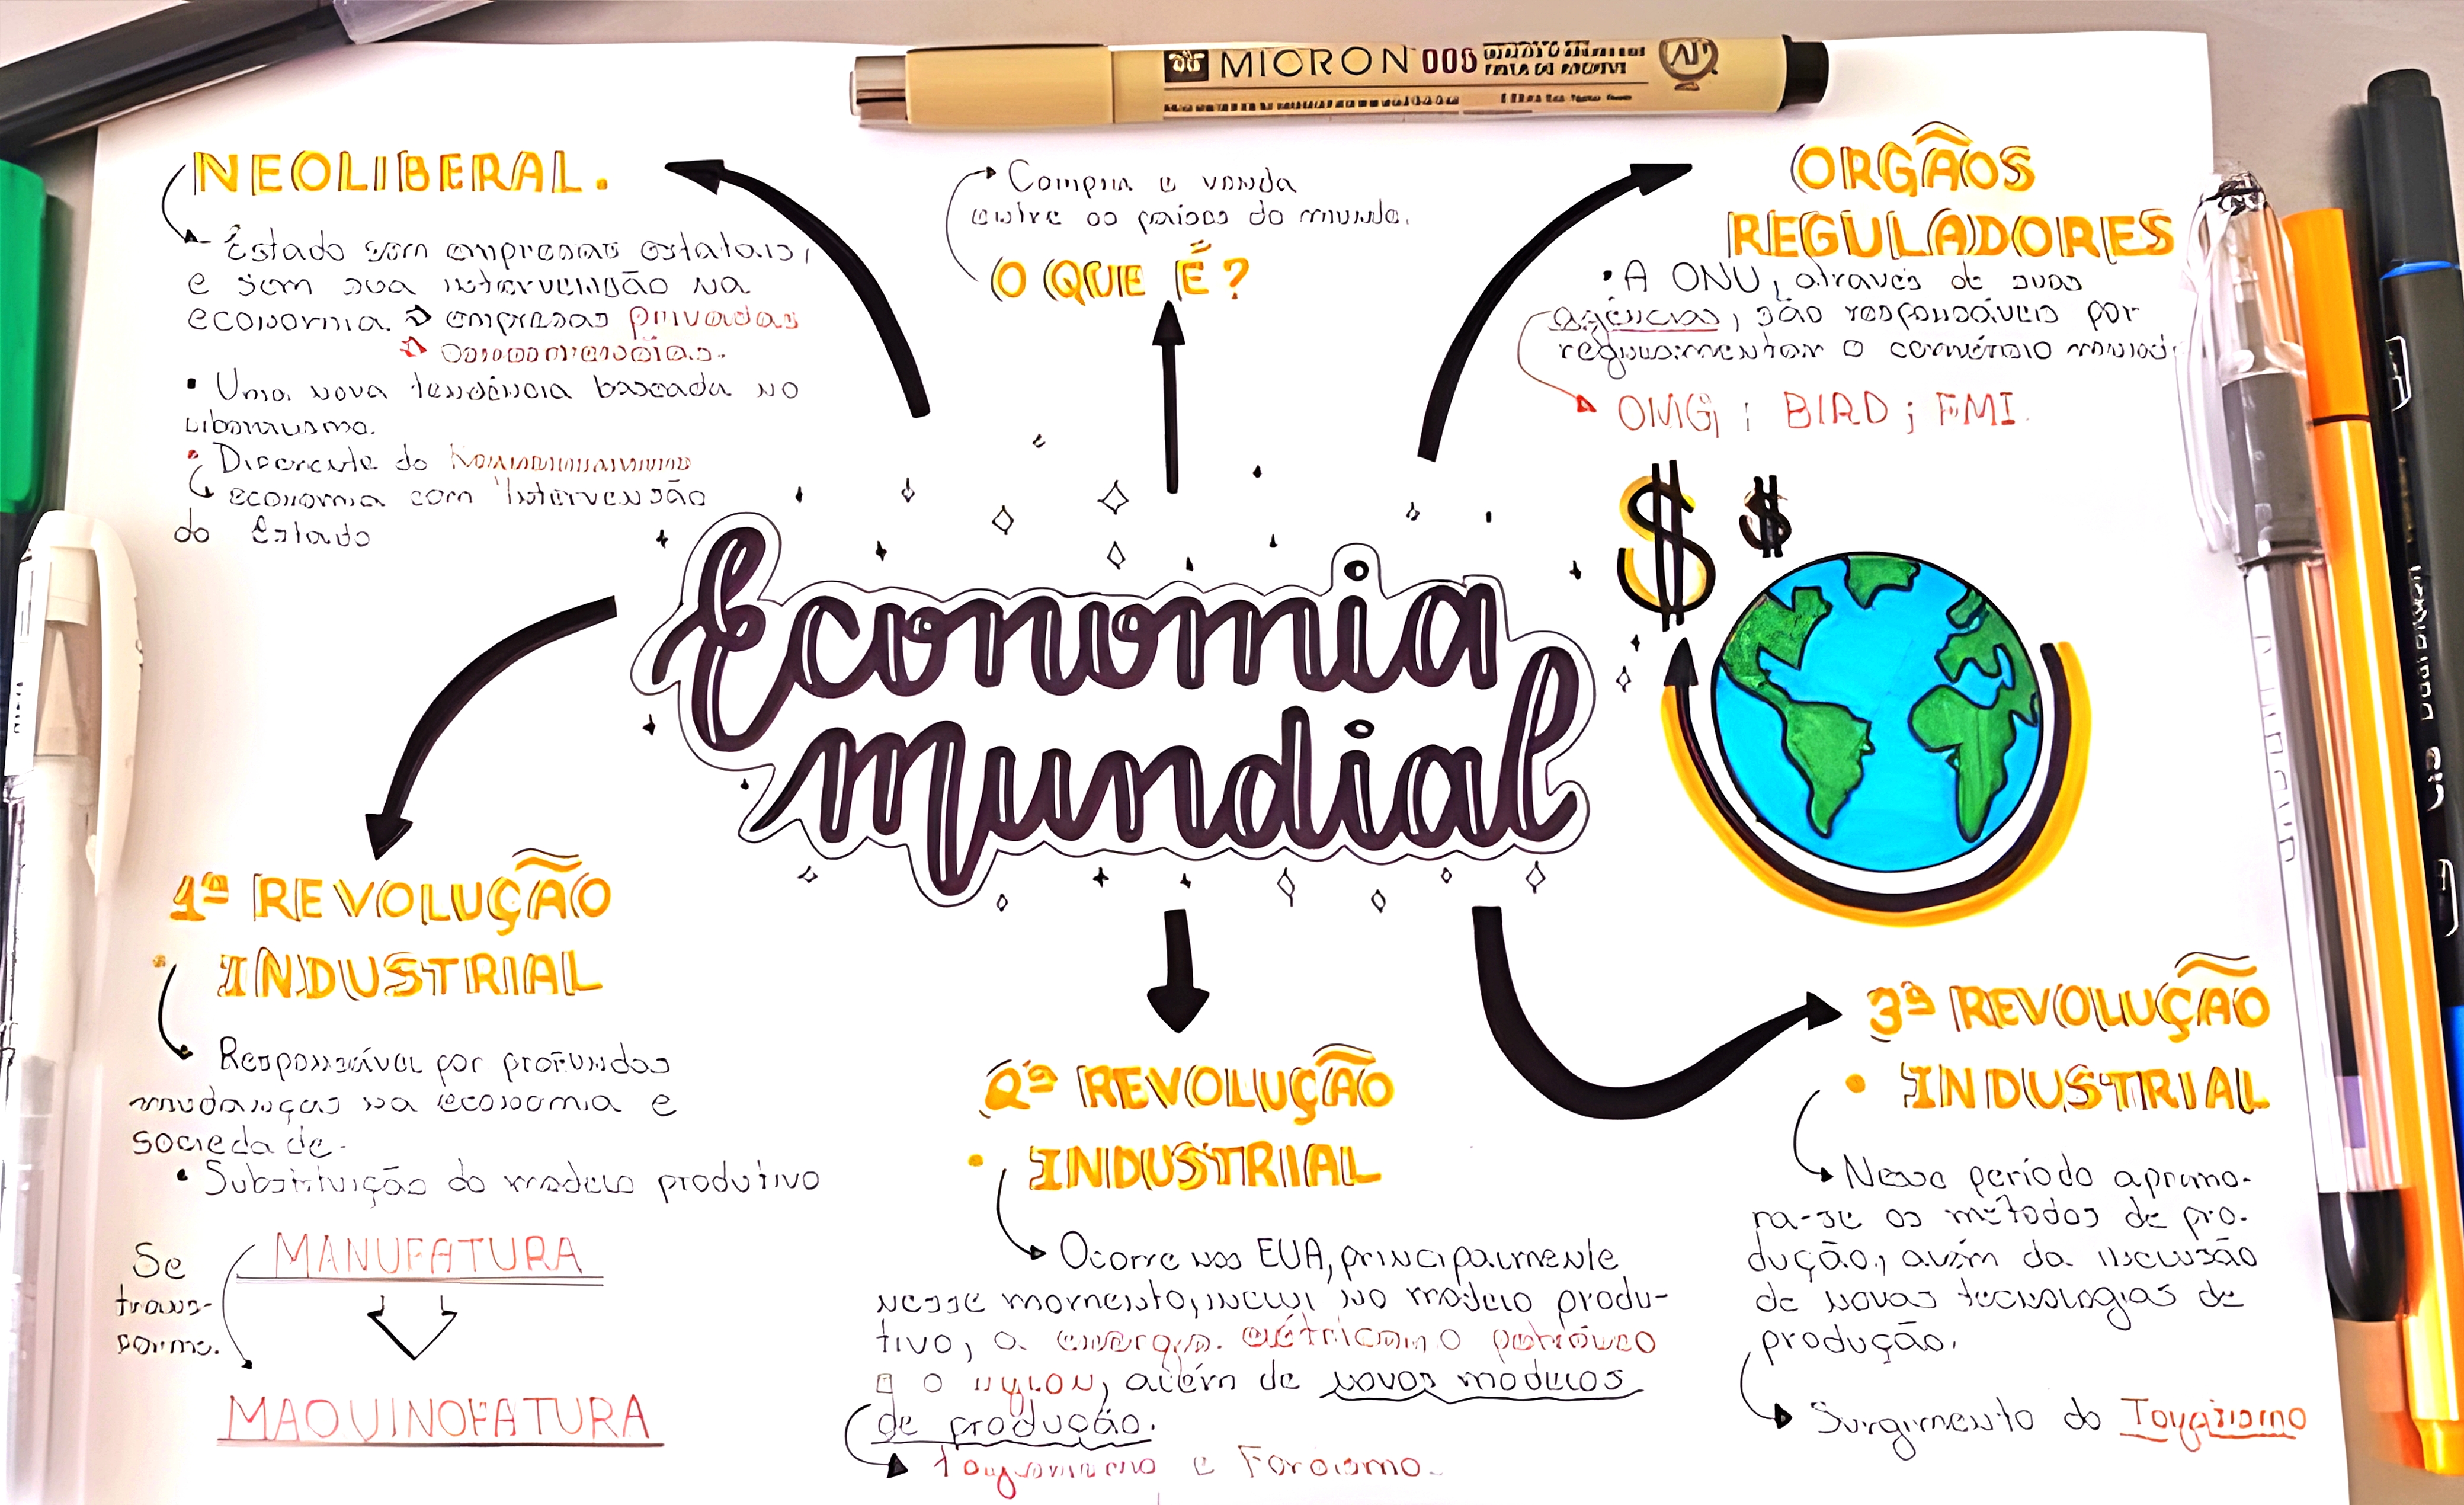 MICRON 005
NEOLIBERAL.
Estado sem empresas estatais,
e sem sua intervenção na
economia. → empresas privadas
• Uma nova tendência baseada no
liberalismo.
• Diferente do
economia com intervensão
do Estado
Compra e venda
entre os países do mundo.
O QUE É?
ORGÃOS
REGULADORES
• A ONU, através de suas
agências, são responsáveis por
regulamentar o comércio
; BIRD ; FMI.
$ $
Economia
Mundial
1ª REVOLUÇÃO
• INDUSTRIAL
Responsável por profundas
mudanças na economia e
sociedade.
• Substituição do modelo produtivo
Se
trans-
forma.
MANUFATURA
MAQUINOFATURA
2ª REVOLUÇÃO
• INDUSTRIAL
Ocorre nos EUA, principalmente
nesse momento, inclui no modelo produ-
tivo, a energia elétrica, o petróleo
e o nylon, além de novos modelos
de produção.
e Fordismo.
3ª REVOLUÇÃO
• INDUSTRIAL
Nesse período aprimo-
ra-se os métodos de pro-
dução, além da inclusão
de novas tecnologias de
produção.
Surgimento do Toyotismo